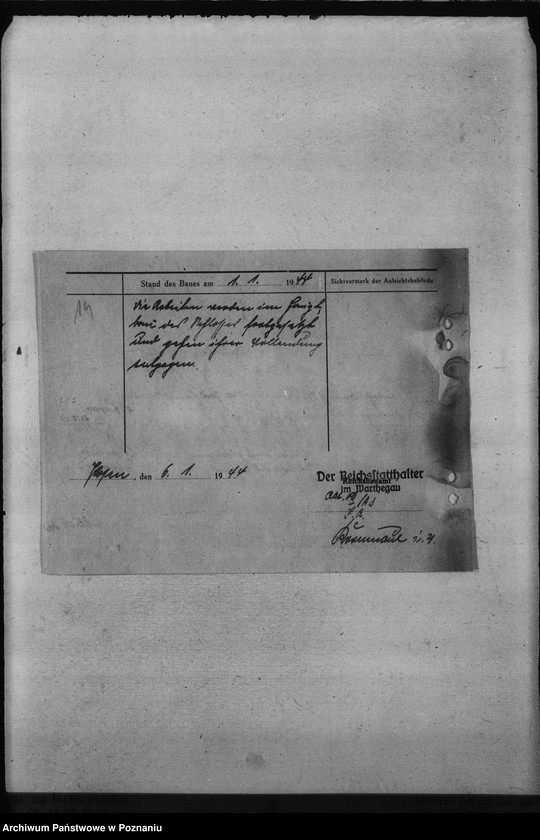 Stand des Baues am 1. 1. 1944
Sichtvermerk der Aufsichtsbehörde
14
Die Arbeiten werden im
bau des Schlosses fortgesetzt
und gehen ihrer Vollendung
entgegen.
Posen, den 6. 1. 1944
Der Reichsstatthalter
Reichsbauamt
im Warthegau
Archiwum Państwowe w Poznaniu